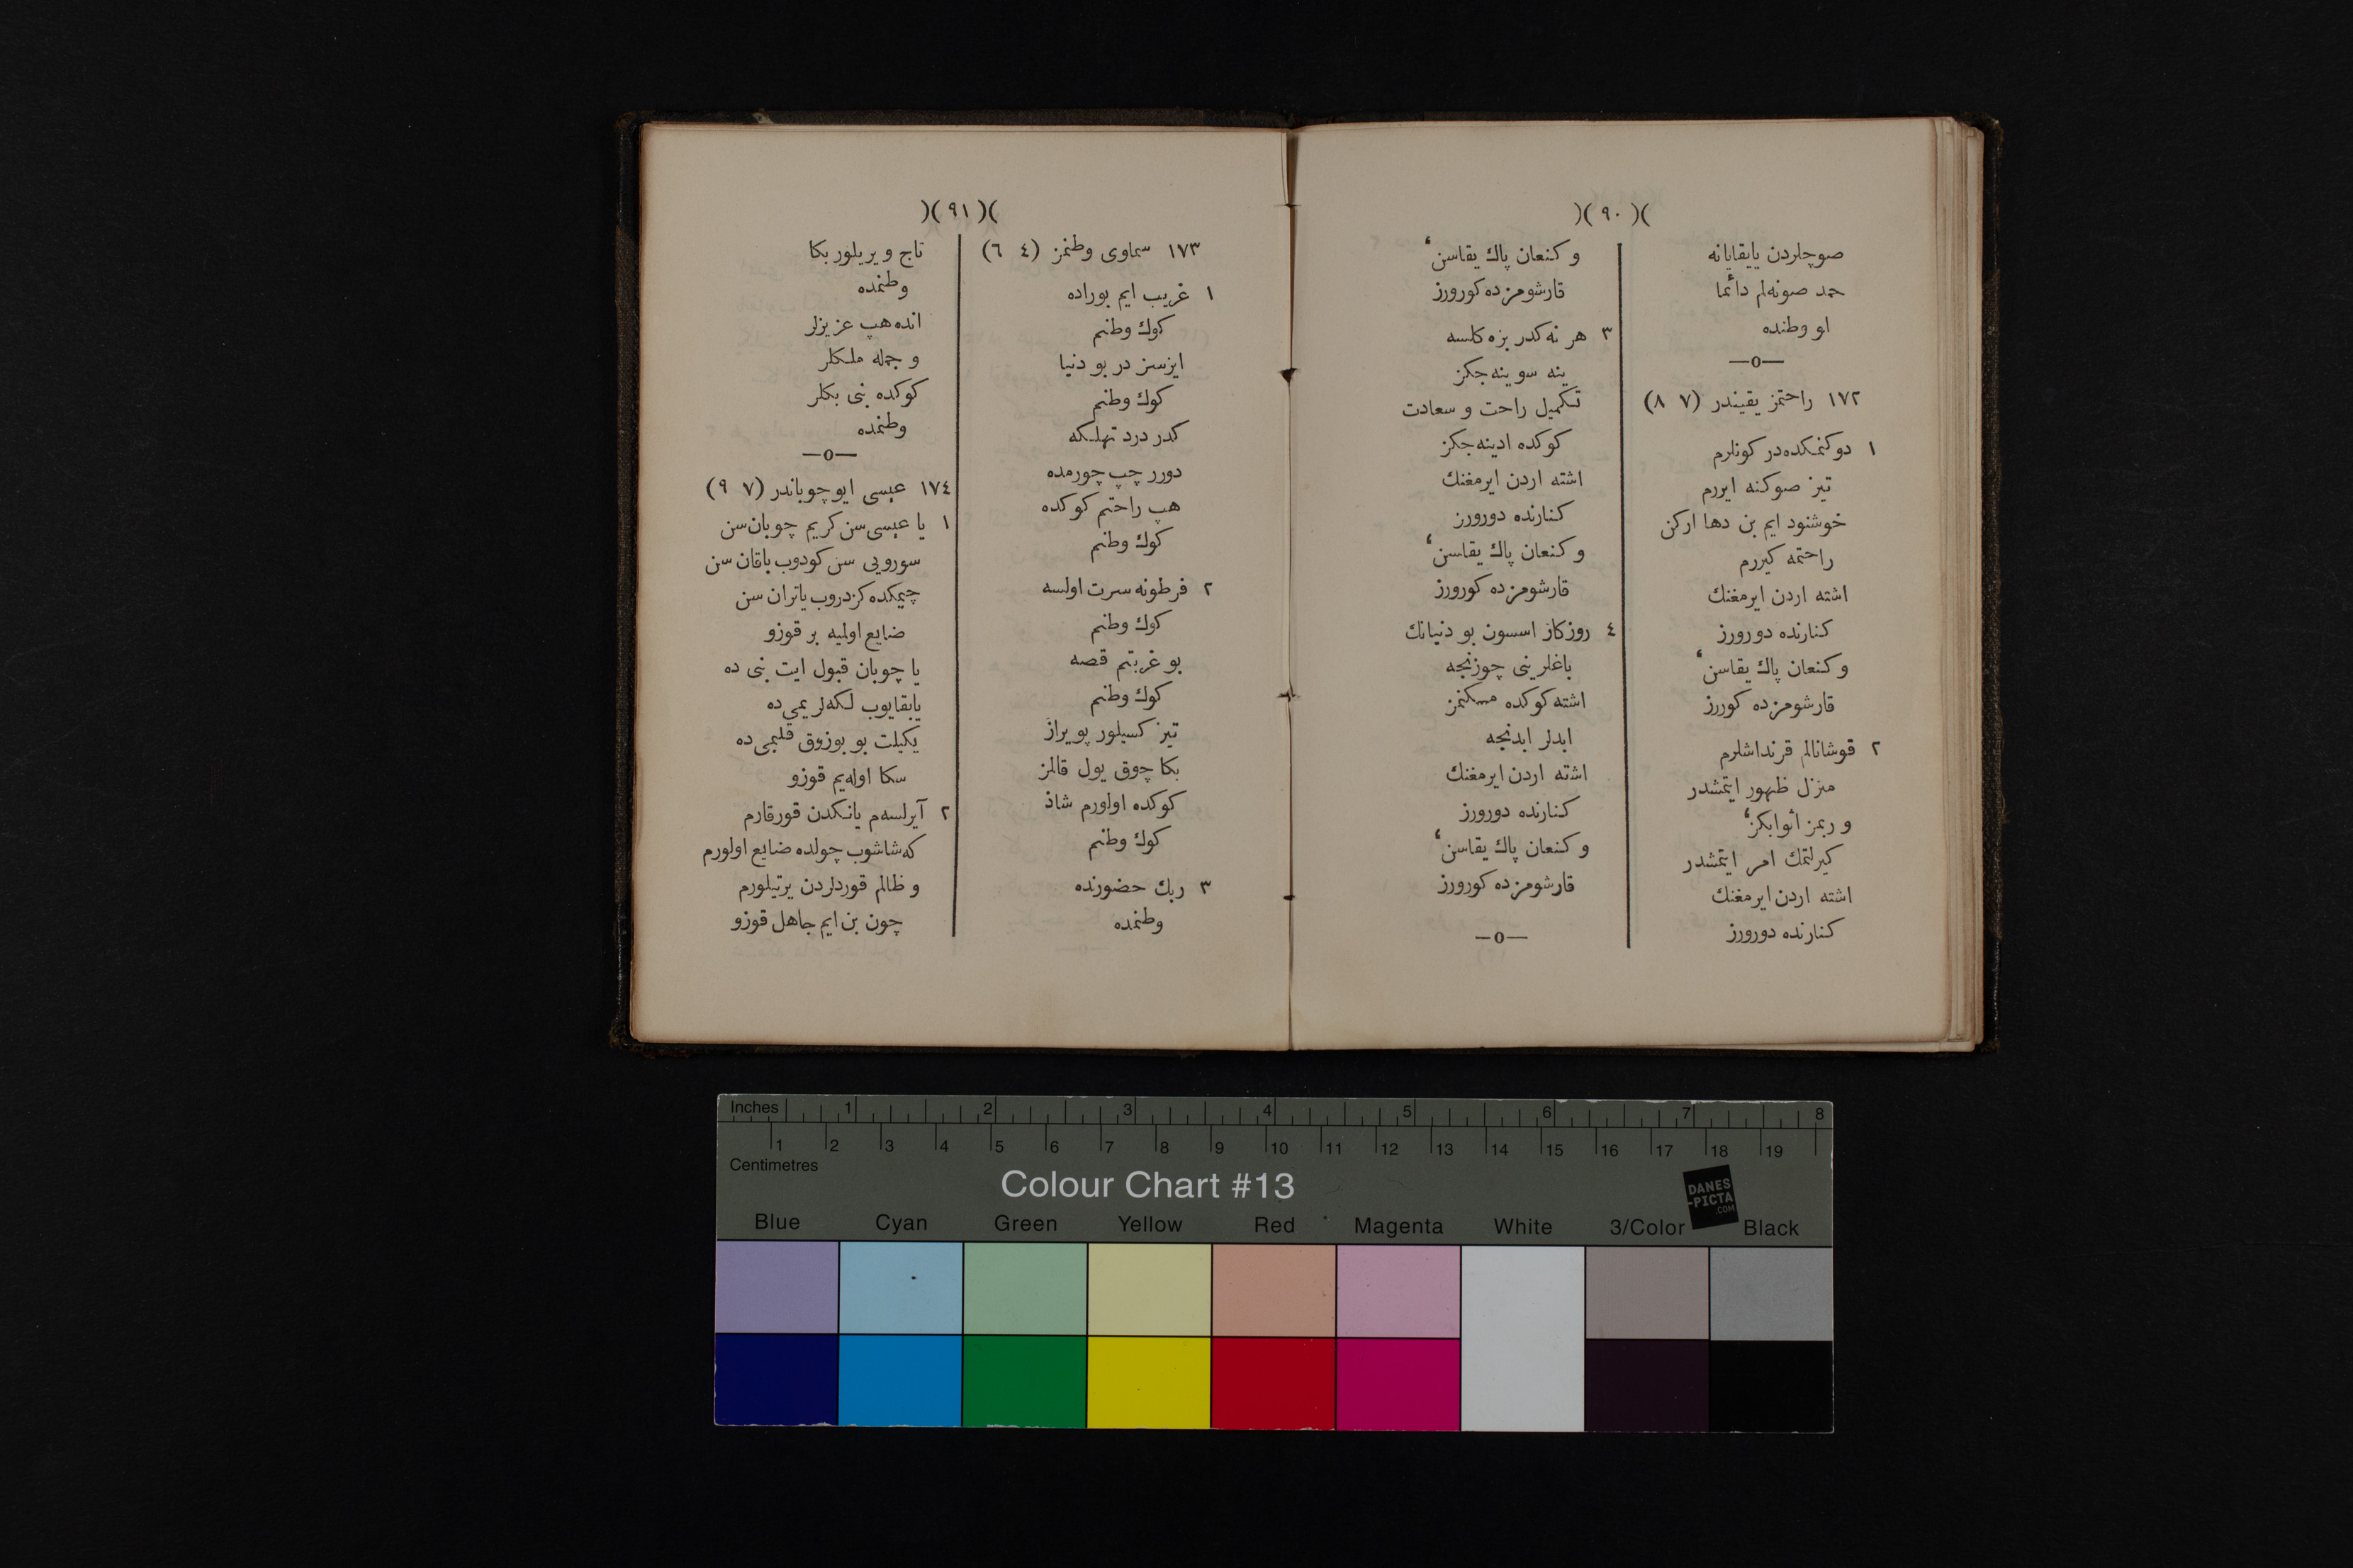 )( ٩٠ )(
صوچلردن یایقایانه
حمد صونه‌لم دائما
او وطنده
—o—
١٧٢ راحتمز یقیندر (٧ ٨)
١ دوکنمکده‌در کونلرم
تیز صوکنه ایررم
خوشنود ایم بن دها ارکن
راحتمه کیررم
اشته اردن ایرمغنك
کنارنده دورورز
و کنعان پاك یقاسن،
قارشومزده کوررز
٢ قوشانالم قرنداشلرم
منزل ظهور ایتمشدر
و ربمز اثوابکز،
کیرلتمك امر ایتمشدر
اشته اردن ایرمغنك
کنارنده دورورز
و کنعان پاك یقاسن،
قارشومزده کورورز
٣ هر نه کدر بزه کلسه
ینه سوینه‌جکز
تکمیل راحت و سعادت
کوکده ادینه‌جکز
اشته اردن ایرمغنك
کنارنده دورورز
و کنعان پاك یقاسن،
قارشومزده کورورز
٤ روزکار اسسون بو دنیانك
باغلرینی چوزنجه
اشته کوکده مسکنمز
ابدلر ابدنجه
اشته اردن ایرمغنك
کنارنده دورورز
و کنعان پاك یقاسن،
قارشومزده کورورز
—o—
)( ٩١ )(
١٧٣ سماوی وطنمز (٤ ٦)
١ غریب ایم بوراده
کوك وطنم
ایزسز در بو دنیا
کوك وطنم
کدر درد تهلکه
دورر چپ چورمده
هپ راحتم کوکده
کوك وطنم
٢ فرطونه سرت اولسه
کوك وطنم
بو غربتم قصه
کوك وطنم
تیز کسیلور پویراز
بکا چوق یول قالمز
کوکده اولورم شاذ
کوك وطنم
٣ ربك حضورنده
وطنمده
تاج ویریلور بکا
وطنمده
انده هپ عزیزلر
و جمله ملکلر
کوکده بنی بکلر
وطنمده
—o—
١٧٤ عیسی ایو چوباندر (٧ ٩)
١ یا عیسی سن کریم چوبان‌سن
سورویی سن کودوب باقان سن
چیمکده کزدروب یاتران سن
ضایع اولمیه بر قوزو
یا چوبان قبول ایت بنی ده
یایقایوب لکه‌لریمی ده
یکیلت بو بوزوق قلبمی ده
سکا اوله‌یم قوزو
٢ آیرلسه‌م یانکدن قورقارم
که شاشوب چولده ضایع اولورم
و ظالم قوردلردن یرتیلورم
چون بن ایم جاهل قوزو
Inches 1 2 3 4 5 6 7 8
1 2 3 4 5 6 7 8 9 10 11 12 13 14 15 16 17 18 19
Centimetres
Colour Chart #13
DANES
-PICTA
.COM
Blue Cyan Green Yellow Red Magenta White 3/Color Black